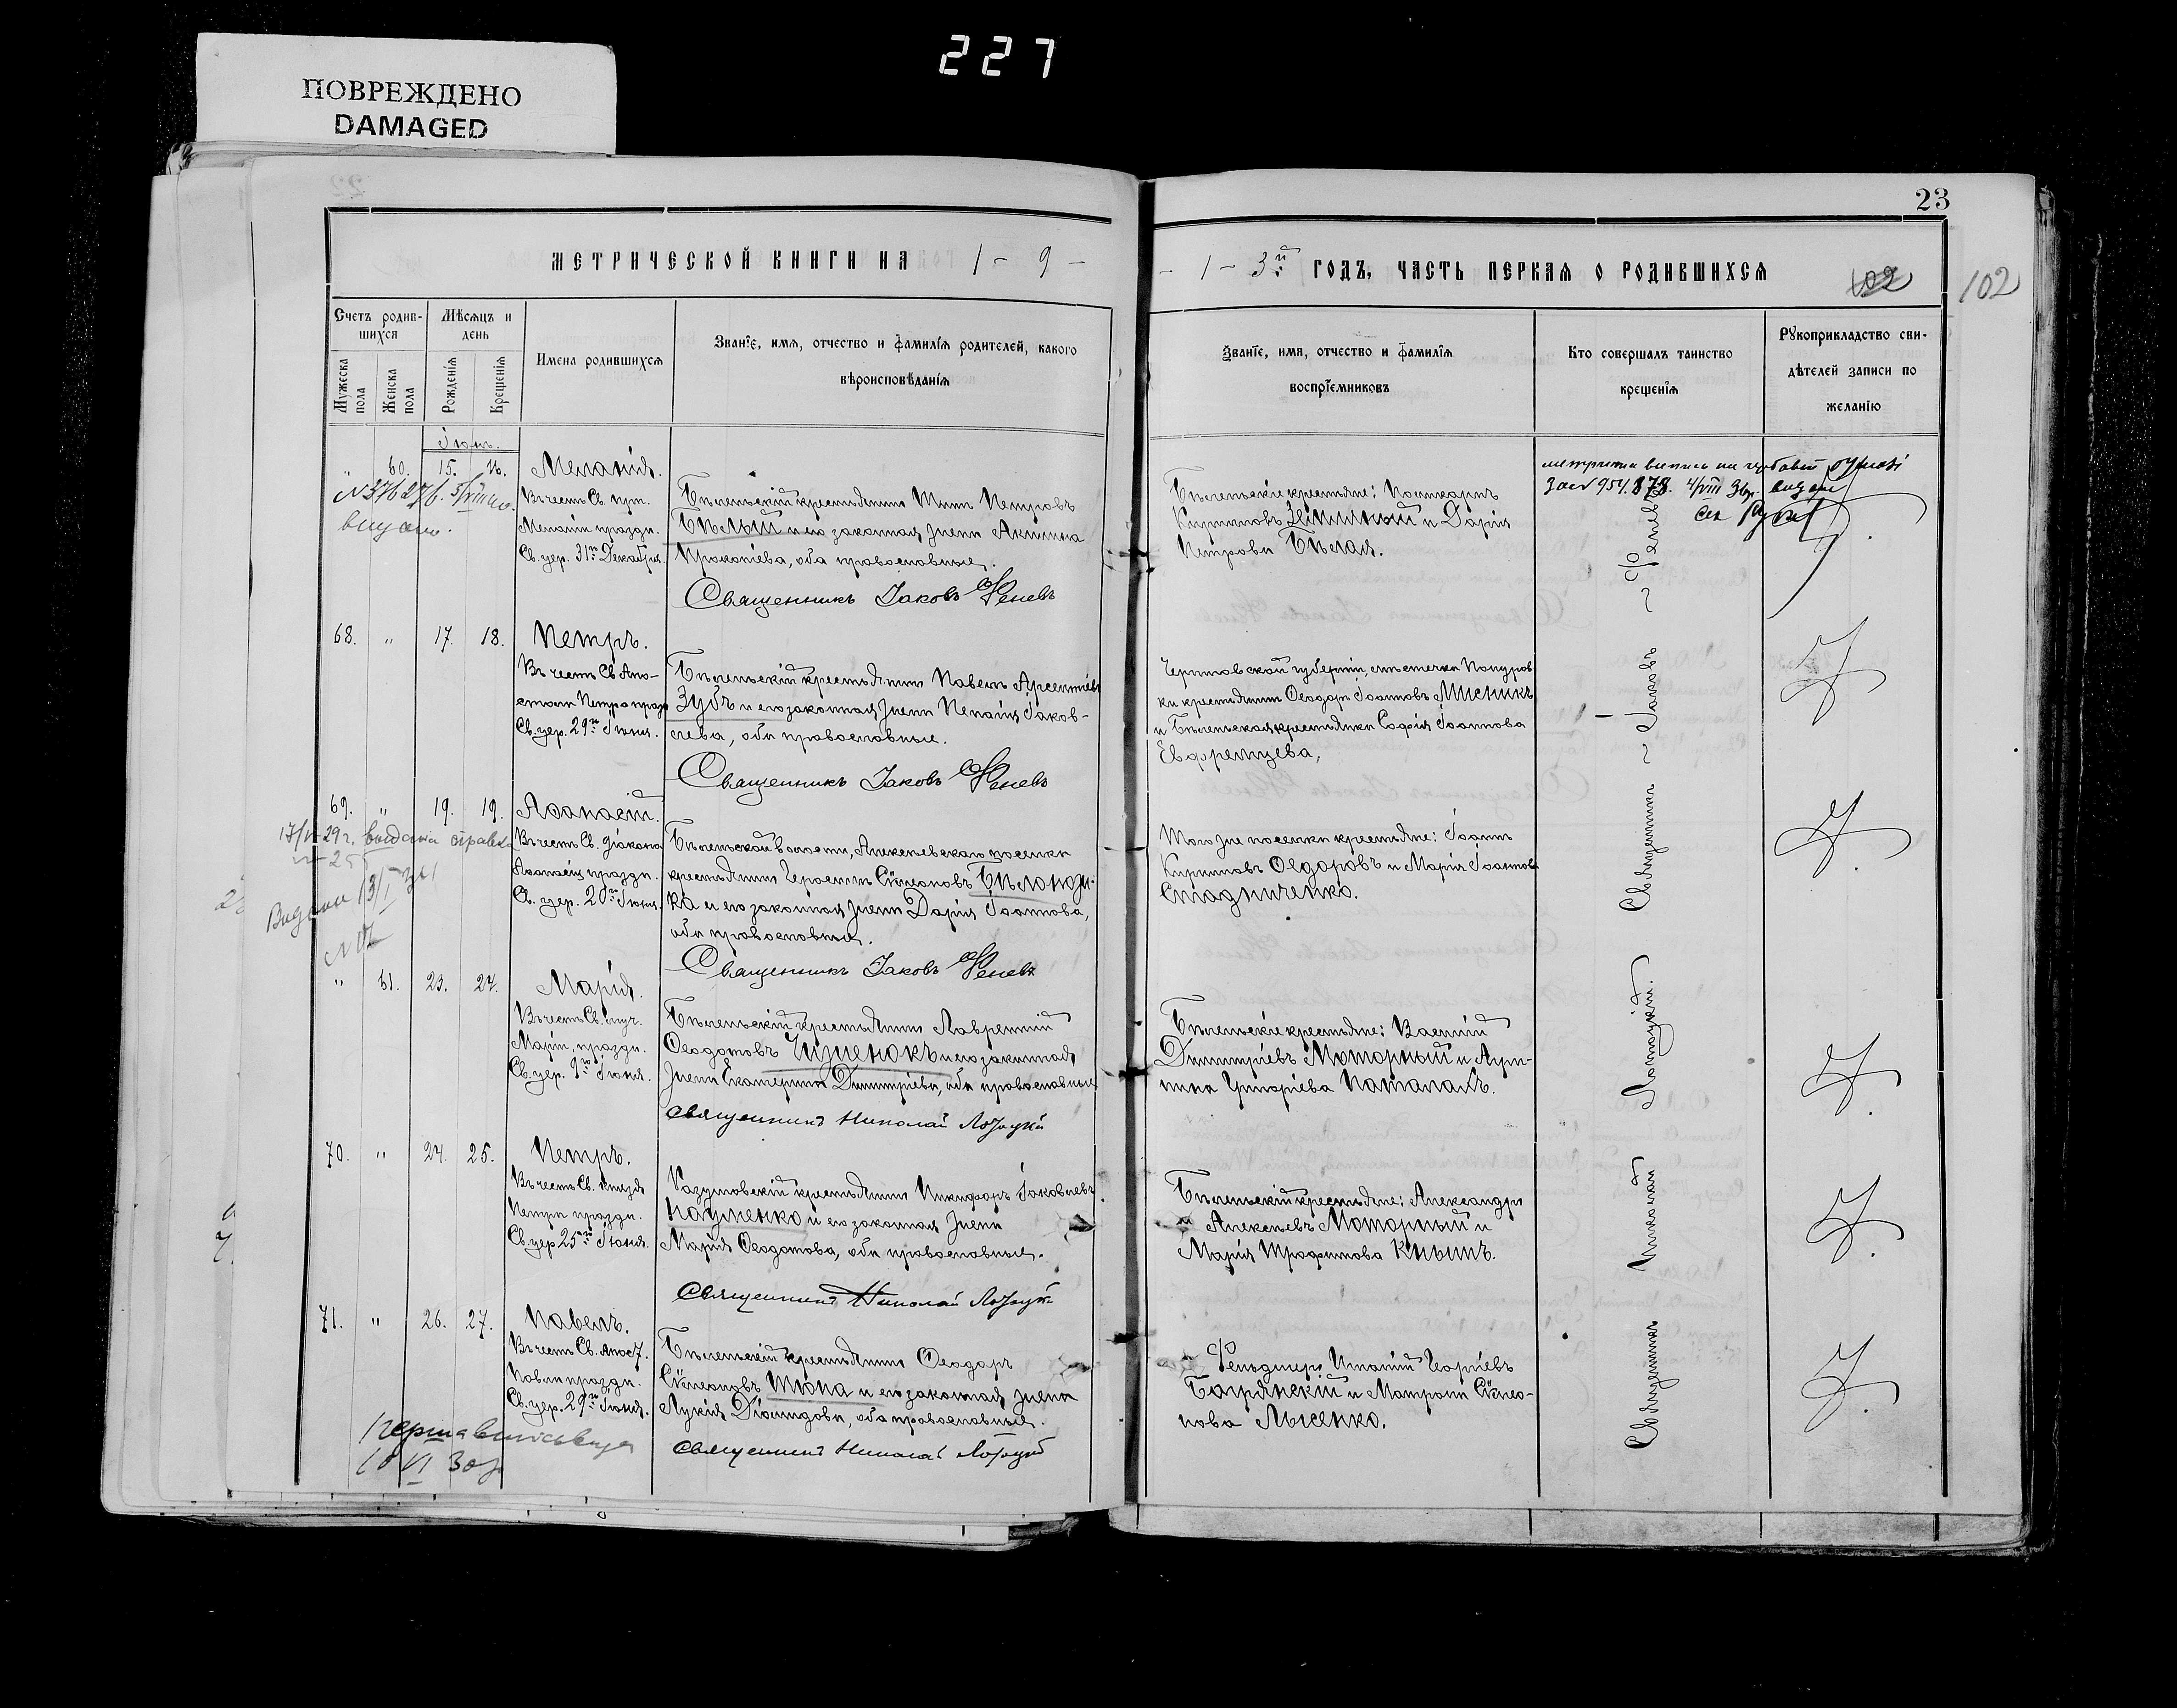 227
ПОВРЕЖДЕНО
DAMAGED
23
МЕТРИЧЕСКОЙ КНИГИ НА 1 - 9 -
- 1 - 3й ГОДЪ, ЧАСТЬ ПЕРВАЯ О РОДИВШИХСЯ
102
102
Счетъ родив-
шихся
Мужеска пола
Женска пола
Мѣсяцъ и
день
Рожденія
Крещенія
Имена родившихся
Званіе, имя, отчество и фамилія родителей, какого
вѣроисповѣданія
Званіе, имя, отчество и фамилія
воспріемниковъ
Кто совершалъ таинство
крещенія
Рукоприкладство сви-
дѣтелей записи по
желанію
Іюнь.
" 60. 15. 16. Меланія.
Въ честь Св. прп.
Меланіи праздн.
Св. цер. 31го Декабря.
Бѣленьскій крестьянинъ Петровъ
Бѣлый и его законная жена Акилина
Прокопіева, оба православные.
Священникъ Іаковъ Феневъ
Бѣленьскіе крестьяне: Поликарпъ
Кирилловъ и Дарія
Петрова Бѣлая.
68. " 17. 18. Петръ.
Въ честь Св. Апо-
стола Петра празд.
Св. цер. 29го Іюня.
Бѣленьскій крестьянинъ Павелъ Арсентіевъ
Зубъ и его законная жена Пелагія Іаков-
лева, оба православные.
Священникъ Іаковъ Феневъ
Черниговской губерніи, мѣстечка
крестьянинъ Ѳеодоръ Іоанновъ Мисникъ
и Бѣленьская крестьянка Софія Іоаннова
Евфремцева,
69. " 19. 19. Аѳанасій.
17/VI-29 г. выдана справка
Въ честь Св. діакона
Аѳанасія праздн.
Св. цер. 20го Іюня.
Бѣленьской волости, Алексѣевскаго поселка
крестьянинъ Стефановъ Бѣлоножи-
ка и его законная жена Дарія Іоаннова,
оба православные.
Священникъ Іаковъ Феневъ
Того же поселка крестьяне: Іоаннъ
Кирилловъ Ѳедоровъ и Марія Іоаннова
Стадниченко.
" 61. 23. 24. Марія.
Въ честь Св. муч.
Маріи, праздн.
Св. цер. 9го Іюня.
Бѣленьскій крестьянинъ Лаврентій
Ѳеодотовъ и его законная
жена Екатерина Димитріева, оба православные
священникъ Николай Лотоцкій
Бѣленьскіе крестьяне: Василій
Димитріевъ Моторный и Агрип-
пина Григоріева Паталахъ.
70. " 24. 25. Петръ.
Въ честь Св. князя
Петра праздн.
Св. цер. 25го Іюня.
Разумовскій крестьянинъ Никифоръ Іаковлевъ
Науменко и его законная жена
Марія Ѳеодотова, оба православные.
священникъ Николай Лотоцкій
Бѣленьскій крестьяне: Александръ
Алексѣевъ Моторный и
Марія Трофимова Книшъ.
71. " 26. 27. Павелъ.
Въ честь Св. Апост.
Павла праздн.
Св. цер. 29го Іюня.
Бѣленьскій крестьянинъ Ѳеодоръ
Стефановъ Шюпа и его законная жена
Лукія Діомидова, оба православные.
священникъ Николай Лотоцкій
Фельдшеръ Игнатій Георгіевъ
Багрянскій и Матрона Стефа-
нова Лысенко.
Священникъ Іаковъ Феневъ
Священникъ Николай Лотоцкій.